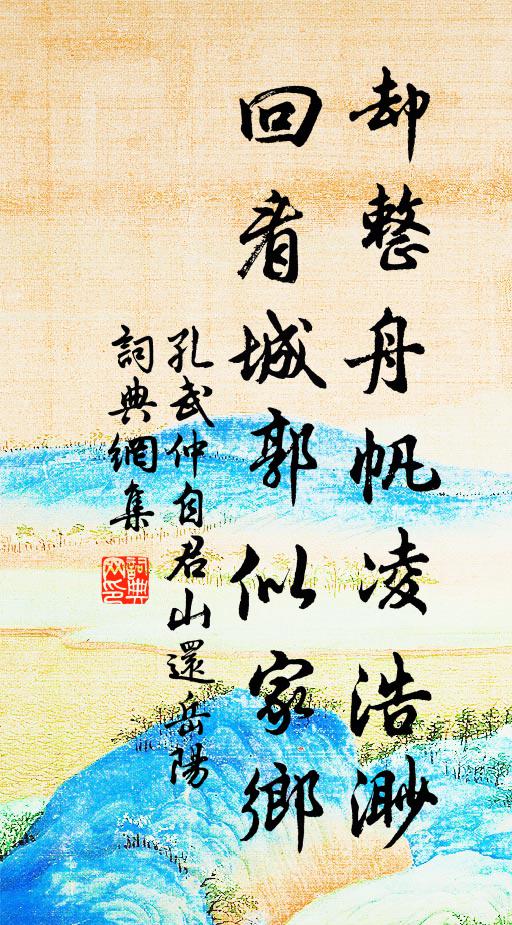 却整舟帆凌浩渺
回看城郭似家鄉
孔武仲自君山還岳陽
詞典網集
詞典网印